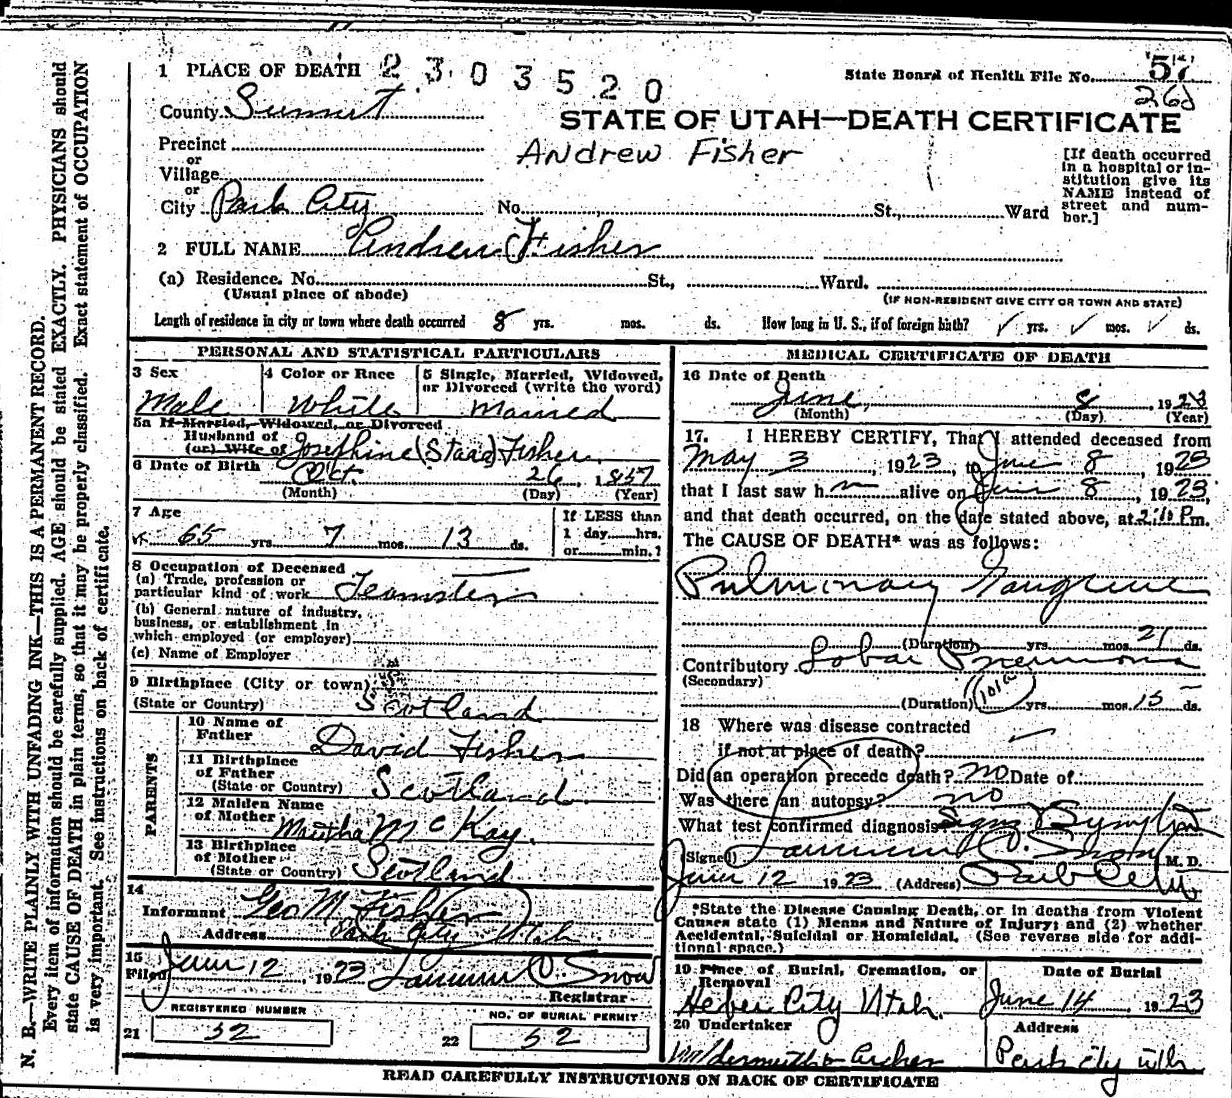 1 PLACE OF DEATH 2303520
State Board of Health File No. 57
26d
County Summit
STATE OF UTAH—DEATH CERTIFICATE
Precinct
Andrew Fisher
or
Village
or
City Park City No. St., Ward
[If death occurred in a hospital or institution give its NAME instead of street and number.]
2 FULL NAME Andrew Fisher
(a) Residence. No. St., Ward.
(Usual place of abode) (IF NON-RESIDENT GIVE CITY OR TOWN AND STATE)
Length of residence in city or town where death occurred 8 yrs. mos. ds. How long in U. S., if of foreign birth? ✓ yrs. ✓ mos. ✓ ds.
PERSONAL AND STATISTICAL PARTICULARS
3 Sex Male
4 Color or Race White
5 Single, Married, Widowed, or Divorced (write the word) Married
5a If Married, Widowed, or Divorced
Husband of
(or) Wife of Josephine (Staad) Fisher
6 Date of Birth Oct. 26, 1857
(Month) (Day) (Year)
7 Age
65 yrs. 7 mos. 13 ds.
If LESS than
1 day hrs.
or min.?
8 Occupation of Deceased
(a) Trade, profession or
particular kind of work Teamster
(b) General nature of industry,
business, or establishment in
which employed (or employer)
(c) Name of Employer
9 Birthplace (City or town)
(State or Country) Scotland
PARENTS
10 Name of
Father David Fisher
11 Birthplace
of Father
(State or Country) Scotland
12 Maiden Name
of Mother Martha McKay.
13 Birthplace
of Mother
(State or Country) Scotland
14
Informant Geo M Fisher
Address Park City Utah
15
Filed June 12, 1923 O. Snow
Registrar
REGISTERED NUMBER
21 52
NO. OF BURIAL PERMIT
22 52
MEDICAL CERTIFICATE OF DEATH
16 Date of Death
June 8, 1923
(Month) (Day) (Year)
17. I HEREBY CERTIFY, That I attended deceased from
May 3, 1923, to June 8, 1923
that I last saw h m alive on June 8, 1923,
and that death occurred, on the date stated above, at 2:10 P.m.
The CAUSE OF DEATH* was as follows:
Pulmonary Gangrene
(Duration) yrs. mos. 21 ds.
Contributory Lobar Pneumonia
(Secondary)
(Duration) 101a yrs. mos. 15 ds.
18 Where was disease contracted
if not at place of death?
Did an operation precede death? no Date of
Was there an autopsy? no
What test confirmed diagnosis Signs Symptoms
(Signed) O. Snow M. D.
June 12 1923 (Address) Park City
*State the Disease Causing Death, or in deaths from Violent
Causes state (1) Means and Nature of Injury; and (2) whether
Accidental, Suicidal or Homicidal. (See reverse side for addi-
tional space.)
19 Place of Burial, Cremation, or
Removal
Heber City Utah.
Date of Burial
June 14, 1923
20 Undertaker
Archer
Address
Park City Utah
READ CAREFULLY INSTRUCTIONS ON BACK OF CERTIFICATE
N. B.—WRITE PLAINLY WITH UNFADING INK—THIS IS A PERMANENT RECORD.
Every item of information should be carefully supplied. AGE should be stated EXACTLY. PHYSICIANS should
state CAUSE OF DEATH in plain terms, so that it may be properly classified. Exact statement of OCCUPATION
is very important. See instructions on back of certificate.